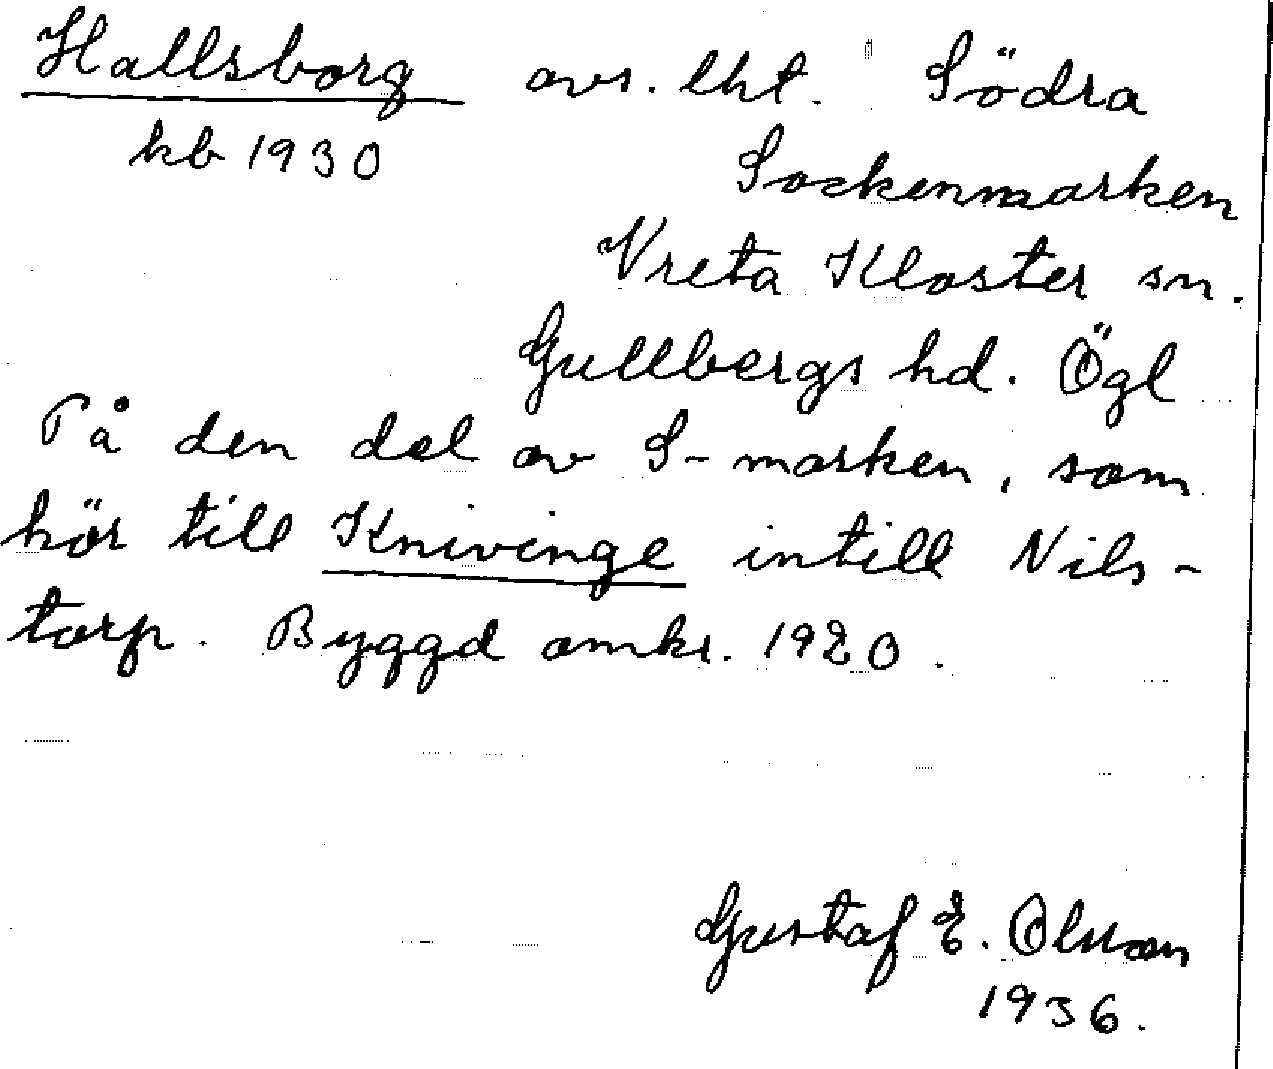 Hallsborg avs. lht. Södra
kb 1930 Sockenmarken
Vreta Kloster sn.
Gullbergs hd. Ögl
På den del av S-marken, som
hör till Knivinge intill Nils-
torp. Byggd omkr. 1920.
Gustaf E. Olsson
1936.